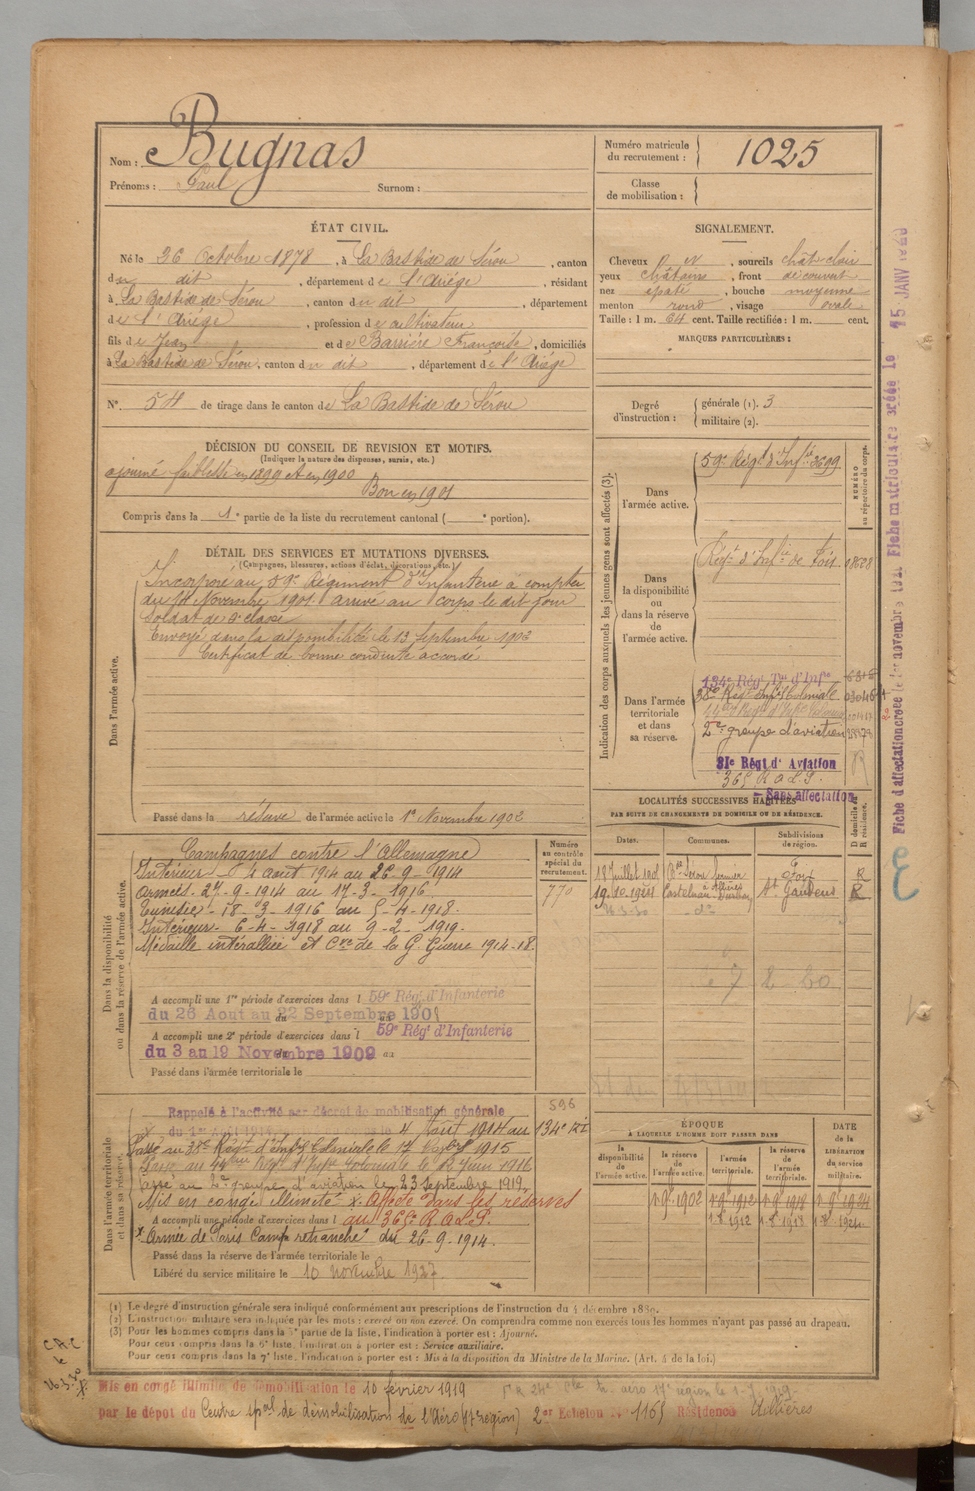 Nom : Bugnas
Prénoms : Paul Surnom :
Numéro matricule du recrutement : 1025
Classe de mobilisation :
ÉTAT CIVIL.
Né le 26 Octobre 1878, à La Bastide de Sérou, canton
du dit, département de l'Ariège, résidant
à La Bastide de Sérou, canton du dit, département
de l'Ariège, profession de cultivateur
fils de Jean et de Barrière Françoise, domiciliés
à La Bastide de Sérou, canton du dit, département de l'Ariège
N° 54 de tirage dans le canton de La Bastide de Sérou
SIGNALEMENT.
Cheveux , sourcils chât clair
yeux châtains, front découvert
nez épaté, bouche moyenne
menton rond, visage ovale
Taille : 1 m. 64 cent. Taille rectifiée : 1 m. cent.
MARQUES PARTICULIÈRES :
Degré d'instruction : générale (1). 3
militaire (2).
DÉCISION DU CONSEIL DE REVISION ET MOTIFS.
(Indiquer la nature des dispenses, sursis, etc.)
ajourné faiblesse en 1899 et en 1900
Bon en 1901
Compris dans la 1e partie de la liste du recrutement cantonal ( e portion).
DÉTAIL DES SERVICES ET MUTATIONS DIVERSES.
(Campagnes, blessures, actions d'éclat, décorations, etc.)
Dans l'armée active.
Incorporé au 59e Régiment d'Infanterie à compter
du 14 Novembre 1901 arrivé au corps le dit jour
Soldat de 2e classe
Envoyé dans la disponibilité le 13 Septembre 1902
Certificat de bonne conduite accordé
Passé dans la réserve de l'armée active le 1er Novembre 1902
Indication des corps auxquels les jeunes gens sont affectés (3).
NUMÉRO au répertoire du corps.
Dans l'armée active.
59e Régt d'Infie 3699
Dans la disponibilité ou dans la réserve de l'armée active.
Régt d'Infie de Foix
Dans l'armée territoriale et dans sa réserve.
134e Régt Tal d'Infie
38e Régt Infie Coloniale
2e groupe d'aviation
31e Régt d'Aviation
365 R A L P.
Sans affectation
LOCALITÉS SUCCESSIVES HABITÉES
PAR SUITE DE CHANGEMENTS DE DOMICILE OU DE RÉSIDENCE.
Dates. Communes. Subdivisions de région. D domicile ou R résidence.
Foix R
19.10.1921 Castelnau St Gaudens R
26.3.30 - do -
Dans la disponibilité ou dans la réserve de l'armée active.
Numéro au contrôle spécial du recrutement.
770
Campagnes contre l'Allemagne
Intérieur 4 août 1914 au 26-9-1914
Armées 27-9-1914 au 17-3-1916
Tunisie - 18-3-1916 au 5-4-1918.
Intérieur - 6-4-1918 au 9-2-1919.
Médaille interalliée et Cve de la Gde Guerre 1914-18.
A accompli une 1re période d'exercices dans l 59e Régt d'Infanterie
du 26 Aout au 22 Septembre 190
A accompli une 2e période d'exercices dans l 59e Régt d'Infanterie
du 3 au 19 Novembre 1909 au
Passé dans l'armée territoriale le
Dans l'armée territoriale et dans sa réserve.
596
Rappelé à l'activité par décret de mobilisation générale
du 1er Août 1914 4 Août 1914 au 134e RI
Passé au 38e Régt d'Infie Coloniale le 17 1915
Passé au Régt d'Infie Coloniale le 18 Juin 1916
Passé au 2e groupe d'aviation le 23 Septembre 1919.
Mis en congé illimité x. Affecté dans les réserves
A accompli une période d'exercices dans l au 365e R.A.L.P.
x Armée de Paris Camp retranché du 26-9-1914.
Passé dans la réserve de l'armée territoriale le
Libéré du service militaire le 10 novembre 1927
ÉPOQUE
À LAQUELLE L'HOMME DOIT PASSER DANS
la disponibilité de l'armée active. la réserve de l'armée active. l'armée territoriale. la réserve de l'armée territoriale.
DATE de la LIBÉRATION du service militaire.
1.9.1902 1.9.1912 1.9.1918 1.9.1924
1.8.1912 1.8.1918 1.8.1924
(1) Le degré d'instruction générale sera indiqué conformément aux prescriptions de l'instruction du 4 décembre 1889.
(2) L'instruction militaire sera indiquée par les mots : exercé ou non exercé. On comprendra comme non exercés tous les hommes n'ayant pas passé au drapeau.
(3) Pour les hommes compris dans la 5e partie de la liste, l'indication à porter est : Ajourné.
Pour ceux compris dans la 6e liste, l'indication à porter est : Service auxiliaire.
Pour ceux compris dans la 7e liste, l'indication à porter est : Mis à la disposition du Ministre de la Marine. (Art. 4 de la loi.)
Mis en congé illimité de démobilisation le 10 février 1919
par le dépôt du Centre ipal de démobilisation de l'Aéro (17e région) 2er Echelon N° 1165 Résidence
C.R.C le 26.3.30
Fiche d'affectation créée le 1er novembre 1921 Fiche matriculaire créée le 15 JANV 1923